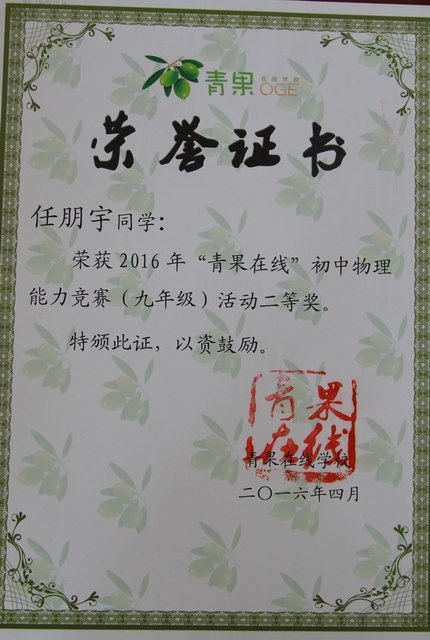 青果 在线学校
OGE
荣誉证书
任朋宇同学：
荣获2016年“青果在线”初中物理
能力竞赛（九年级）活动二等奖。
特颁此证，以资鼓励。
青果
在线
青果在线学校
二〇一六年四月